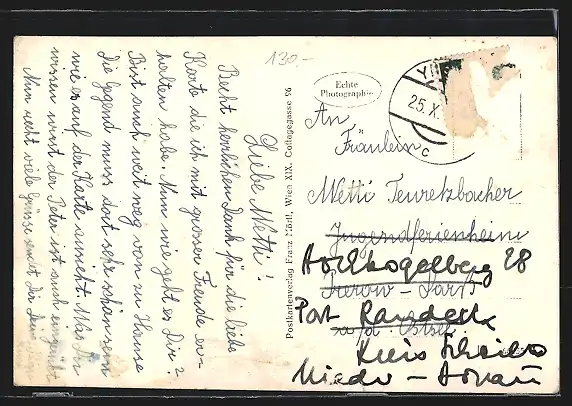 130,-
Liebe Metti!
Recht herzlichen Dank für die liebe
Karte die ich mit grosser Freude er-
halten habe. Nun wie geht es Dir?
Bist auch weit weg von zu Hause
Die Gegend muss dort sehr schön sein
wie es auf der Karte aussieht. Was Du
wissen wirst der Peter ist auch eingerückt
Nun recht viele Grüsse sendet Dir Deine
Postkartenverlag Franz Mörtl, Wien XIX. Cottagegasse 96
Echte
Photographie
25. X.
c
An
Fräulein
Metti Teuretzbacher
Jugendferienheim
Hochkogelberg 28
Prerow - Darß
Post Randegg
a/d Ostsee
Kreis Scheibbs
Nieder - Donau